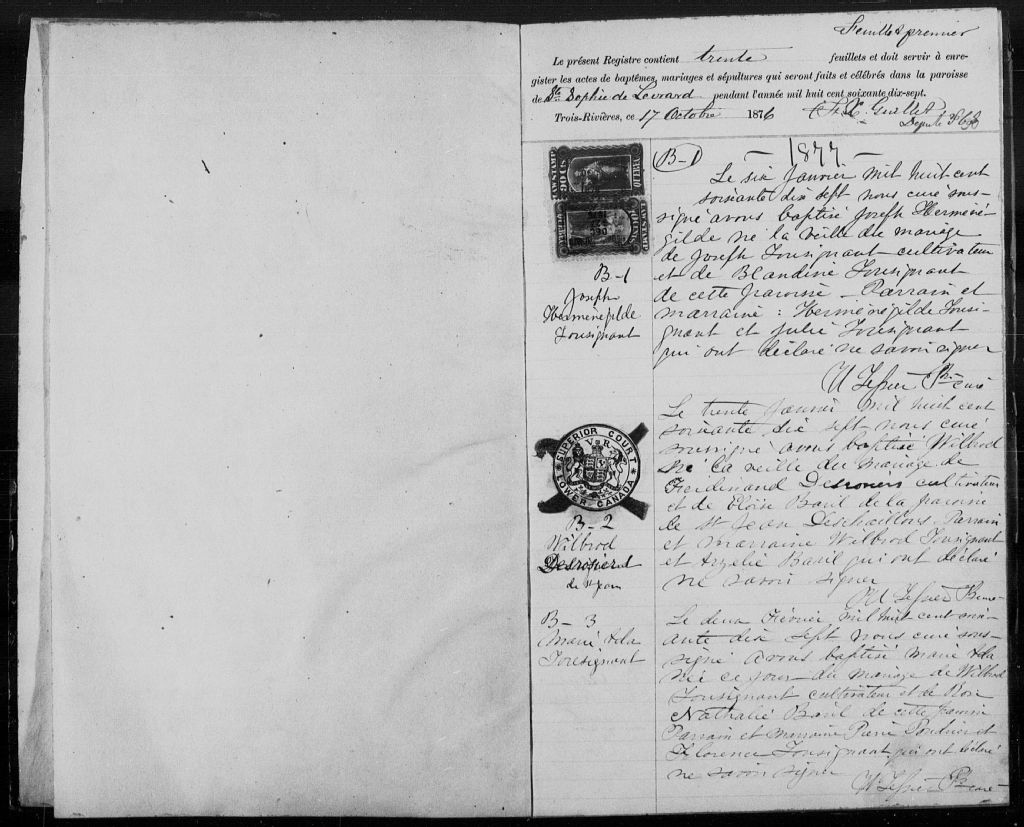 Feuillet premier
Le présent Registre contient trente feuillets et doit servir à enre-
gister les actes de baptêmes, mariages et sépultures qui seront faits et célébrés dans la paroisse
de Ste Sophie de Levrard pendant l'année mil huit cent soixante dix-sept.
Trois-Rivières, ce 17 Octobre 1876
Guillet
Député
B-1
1877
Le six Janvier mil huit cent
soixante dix sept nous curé sous-
signé avons baptisé Joseph Herméné-
gilde né la veille du mariage
de Joseph Tousignant cultivateur
et de Blandine Tousignant
de cette paroisse - Parrain et
marraine : Herménégilde Tousi-
gnant et Julie Tousignant
qui ont déclaré ne savoir signer
Ptre curé
LAW STAMP
90 CTS
B-1
Joseph
Herménégilde
Tousignant
Le trente Janvier mil huit cent
soixante dix sept nous curé
soussigné avons baptisé Wilbrod
né la veille du mariage de
Ferdinand Desrosiers cultivateur
et de Eloïse Baril de la paroisse
de St Jean Deschaillons Parrain
et marraine Wilbrod Tousignant
et Azélie Baril qui ont déclaré
ne savoir signer
SUPERIOR COURT
V R
LOWER CANADA
B-2
Wilbrod
Desrosiers
de St Jean
B-3
Marie Ada
Tousignant
Le deux Février mil huit cent soix-
ante dix sept nous curé sous-
signé avons baptisé Marie Ada
née ce jour du mariage de Wilbrod
Tousignant cultivateur et de Rose
Nathalie Baril de cette paroisse
Parrain et marraine Pierre Poudrier et
Florence Tousignant qui ont déclaré
ne savoir signer
Ptre curé